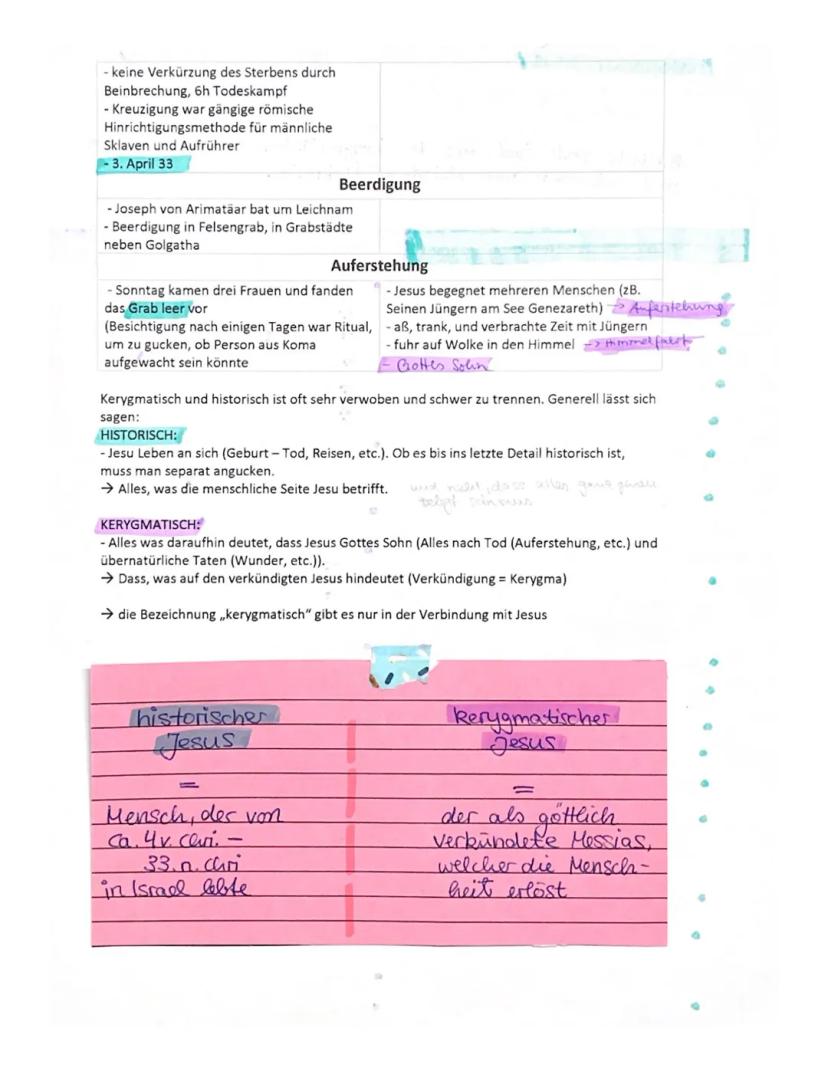 - keine Verkürzung des Sterbens durch
Beinbrechung, 6h Todeskampf
- Kreuzigung war gängige römische
Hinrichtigungsmethode für männliche
Sklaven und Aufrührer
- 3. April 33
Beerdigung
- Joseph von Arimatäar bat um Leichnam
- Beerdigung in Felsengrab, in Grabstädte
neben Golgatha
Auferstehung
- Sonntag kamen drei Frauen und fanden
das Grab leer vor
(Besichtigung nach einigen Tagen war Ritual,
um zu gucken, ob Person aus Koma
aufgewacht sein könnte
- Jesus begegnet mehreren Menschen (zB.
Seinen Jüngern am See Genezareth) -> Auferstehung
- aß, trank, und verbrachte Zeit mit Jüngern
- fuhr auf Wolke in den Himmel -> Himmelfahrt
- Gottes Sohn
Kerygmatisch und historisch ist oft sehr verwoben und schwer zu trennen. Generell lässt sich
sagen:
HISTORISCH:
- Jesu Leben an sich (Geburt – Tod, Reisen, etc.). Ob es bis ins letzte Detail historisch ist,
muss man separat angucken.
→ Alles, was die menschliche Seite Jesu betrifft.
und nicht, dass alles ganz genau
sein muss
KERYGMATISCH:
- Alles was daraufhin deutet, dass Jesus Gottes Sohn (Alles nach Tod (Auferstehung, etc.) und
übernatürliche Taten (Wunder, etc.)).
→ Dass, was auf den verkündigten Jesus hindeutet (Verkündigung = Kerygma)
→ die Bezeichnung „kerygmatisch" gibt es nur in der Verbindung mit Jesus
historischer
Jesus
=
Mensch, der von
ca. 4 v. Chri. –
33. n. Chri
in Israel lebte
kerygmatischer
Jesus
=
der als göttlich
verkündete Messias,
welcher die Mensch-
heit erlöst